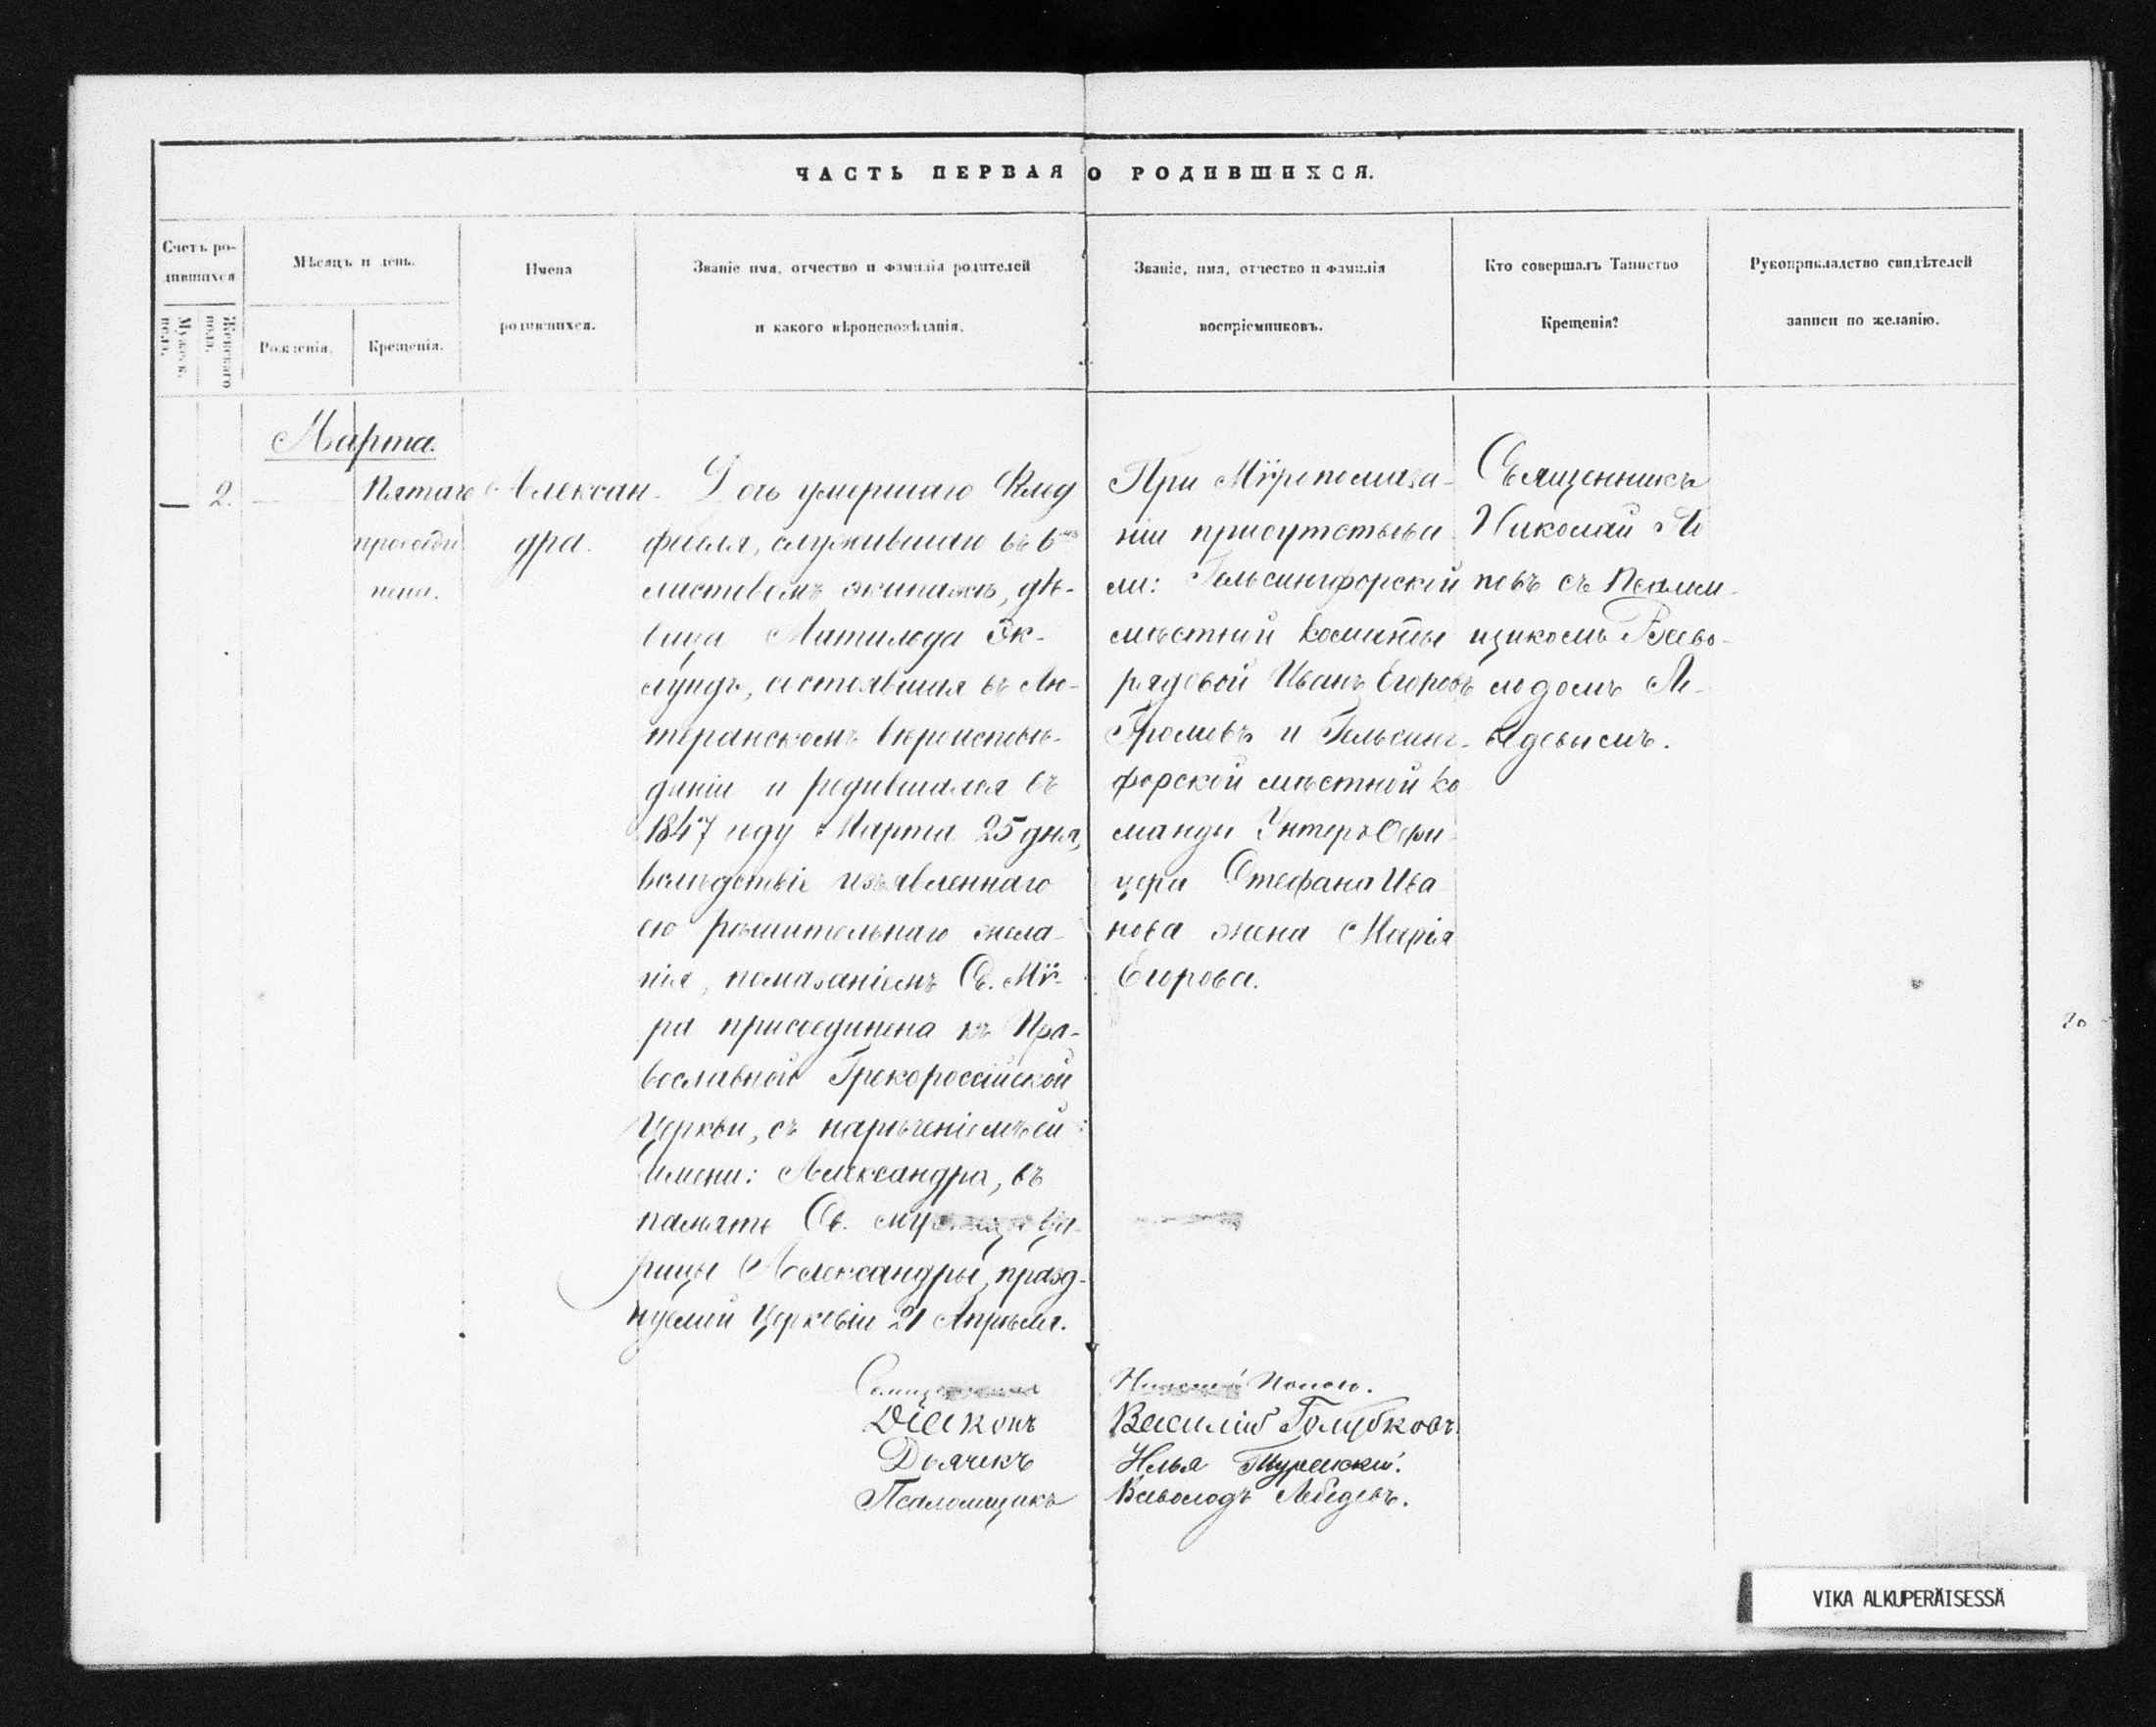 ЧАСТЬ ПЕРВАЯ О РОДИВШИХСЯ.
Счетъ ро-
дившихся
Мужеск. пола.
Женскаго пола.
Мѣсяцъ и день.
Рожденія.
Крещенія.
Имена
родившихся.
Званіе имя, отчество и фамилія родителей
и какого вѣроисповѣданія.
Званіе, имя, отчество и фамилія
воспріемниковъ.
Кто совершалъ Таинство
Крещенія?
Рукоприкладство свидѣтелей
записи по желанію.
Марта.
— 2.
Пятаго
присоеди
нена.
Алексан-
дра.
Дочь умершаго
служившаго въ 6мъ
ластовомъ экипажѣ, дѣ-
вица Матильда Эк-
лундъ, состоявшая въ Лю-
теранскомъ вѣроисповѣ-
даніи и родившаяся въ
1847 году Марта 25 дня,
вслѣдствіе изъявленнаго
ею рѣшительнаго жела-
нія, помазаніемъ Св. Мѵ-
ра присоединена къ Пра-
вославной Грекороссійской
Церкви, съ нареченіемъ ей
имени: Александра, въ
память Св. мученицы Ца-
рицы Александры, празд-
нуемой Церковію 21 Апрѣля.
При Мѵропомаза-
ніи присутствова
ли: Гельсингфорской
мѣстной команды
рядовой Иванъ Егоровъ
Громовъ и Гельсинг-
форской мѣстной ко
манды Унтеръ Офи-
цера Стефана Ива
нова жена Марія
Егорова.
Священникъ
Николай По
повъ съ Псалом-
щикомъ Всево-
лодомъ Ле-
бедевымъ.
Священникъ Николай Поповъ.
Діаконъ Василій Голубковъ.
Дьячекъ Илья
Псаломщикъ Всеволодъ Лебедевъ.
20
VIKA ALKUPERÄISESSÄ